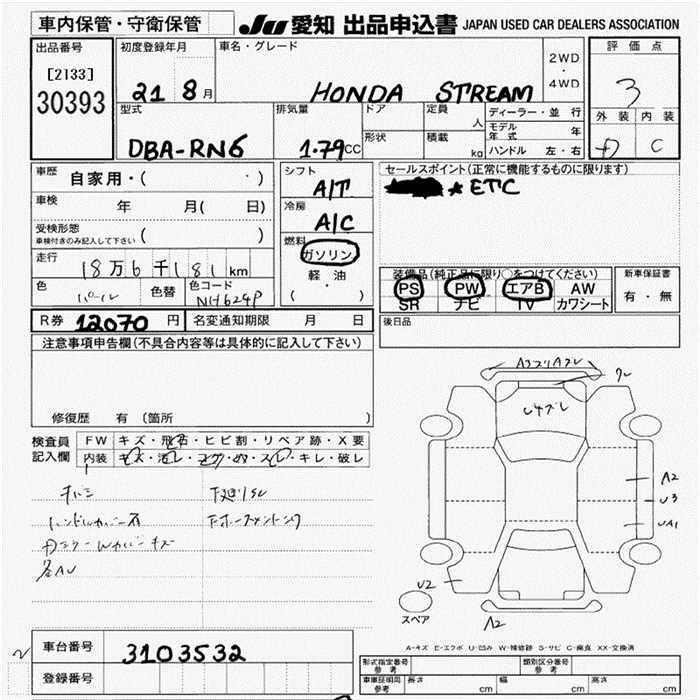 車内保管・守衛保管
JU 愛知 出品申込書 JAPAN USED CAR DEALERS ASSOCIATION
出品番号
[2133]
30393
初度登録年月
21 8月
車名・グレード
HONDA STREAM
2WD
・
4WD
評価点
3
外装 内装
C
型式
DBA-RN6
排気量
1.79CC
ドア
形状
定員
人
積載
kg
ディーラー・並行
モデル年式 年
ハンドル 左・右
車歴 自家用・( ・ )
車検 年 月( 日)
受検形態
車検付きのみ記入して下さい ( )
走行 18万6千181km
色
パール
色替
色コード
NH624P
シフト
A/T
冷房
A/C
燃料
ガソリン
・
軽・油
( )
セールスポイント(正常に機能するものに限ります)
★ETC
装備品(純正品に限り○をつけてください)
PS PW エアB AW
SR ナビ TV カワシート
新車保証書
有・無
R券 12070 円 名変通知期限 月 日
後日品
注意事項申告欄(不具合内容等は具体的に記入して下さい)
修復歴 有 (箇所 )
検査員
記入欄
FW キズ・飛石・ヒビ割・リペア跡・X要
内装 キズ・汚レ・コゲ・穴・スレ・キレ・破レ
A2
U3
UA1
U2
A2
スペア
A-キズ E-エクボ U-凹み W-補修跡 S-サビ C-腐食 XX-交換済
車台番号 3103532
登録番号
形式指定番号
参考
類別区分番号
参考
車庫証明用
参考
長さ cm 幅 cm 高さ cm